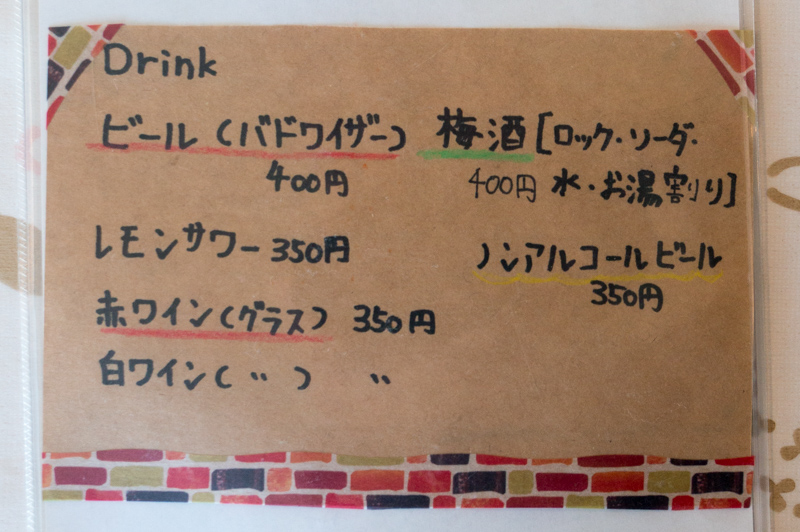 Drink
ビール（バドワイザー）
400円
レモンサワー 350円
赤ワイン（グラス） 350円
白ワイン（ 〃 ） 〃
梅酒［ロック・ソーダ・
400円 水・お湯割り］
ノンアルコールビール
350円